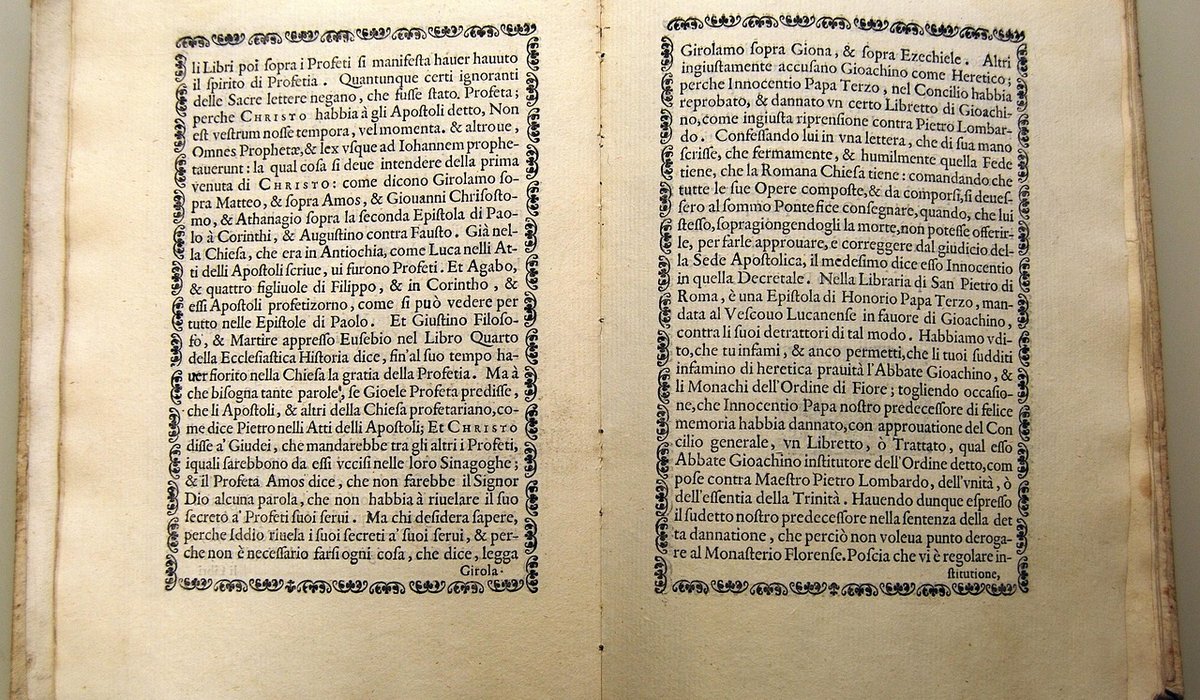 li Libri poi sopra i Profeti si manifesta hauer hauuto
il spirito di Profetia. Quantunque certi ignoranti
delle Sacre lettere negano, che fusse stato. Profeta;
perche CHRISTO habbia à gli Apostoli detto, Non
est vestrum nosse tempora, vel momenta. & altroue,
Omnes Prophetæ, & lex vsque ad Iohannem prophe-
tauerunt: la qual cosa si deue intendere della prima
venuta di CHRISTO: come dicono Girolamo so-
pra Matteo, & sopra Amos, & Giouanni Chrisosto-
mo, & Athanagio sopra la seconda Epistola di Pao-
lo à Corinthi, & Augustino contra Fausto. Già nel-
la Chiesa, che era in Antiochia, come Luca nelli At-
ti delli Apostoli scriue, ui furono Profeti. Et Agabo,
& quattro figliuole di Filippo, & in Corintho, &
essi Apostoli profetizorno, come si può vedere per
tutto nelle Epistole di Paolo. Et Giustino Filoso-
fo, & Martire appresso Eusebio nel Libro Quarto
della Ecclesiastica Historia dice, fin'al suo tempo ha-
uer fiorito nella Chiesa la gratia della Profetia. Ma à
che bisogna tante parole, se Gioele Profeta predisse,
che li Apostoli, & altri della Chiesa profetariano, co-
me dice Pietro nelli Atti delli Apostoli; Et CHRISTO
disse a' Giudei, che mandarebbe tra gli altri i Profeti,
iquali sarebbono da essi vccisi nelle loro Sinagoghe;
& il Profeta Amos dice, che non farebbe il Signor
Dio alcuna parola, che non habbia à riuelare il suo
secreto a' Profeti suoi serui. Ma chi desidera sapere,
perche Iddio riuela i suoi secreti a' suoi serui, & per-
che non è necessario farsi ogni cosa, che dice, legga
Girola-
Girolamo sopra Giona, & sopra Ezechiele. Altri
ingiustamente accusano Gioachino come Heretico;
perche Innocentio Papa Terzo, nel Concilio habbia
reprobato, & dannato vn certo Libretto di Gioachi-
no, come ingiusta riprensione contra Pietro Lombar-
do. Confessando lui in vna lettera, che di sua mano
scrisse, che fermamente, & humilmente quella Fede
tiene, che la Romana Chiesa tiene: comandando che
tutte le sue Opere composte, & da comporsi, si deues-
sero al sommo Pontefice consegnare, quando, che lui
stesso, sopragiongendogli la morte, non potesse offerir-
le, per farle approuare, e correggere dal giudicio del-
la Sede Apostolica, il medesimo dice esso Innocentio
in quella Decretale. Nella Libraria di San Pietro di
Roma, è una Epistola di Honorio Papa Terzo, man-
data al Vescouo Lucanense in fauore di Gioachino,
contra li suoi detrattori di tal modo. Habbiamo vdi-
to, che tu infami, & anco permetti, che li tuoi sudditi
infamino di heretica prauità l'Abbate Gioachino, &
li Monachi dell'Ordine di Fiore; togliendo occasio-
ne, che Innocentio Papa nostro predecessore di felice
memoria habbia dannato, con approuatione del Con
cilio generale, vn Libretto, ò Trattato, qual esso
Abbate Gioachino institutore dell'Ordine detto, com
pose contra Maestro Pietro Lombardo, dell'vnità, ò
dell'essentia della Trinità. Hauendo dunque espresso
il sudetto nostro predecessore nella sentenza della det
ta dannatione, che perciò non voleua punto deroga-
re al Monasterio Florense. Poscia che vi è regolare in-
stitutione,